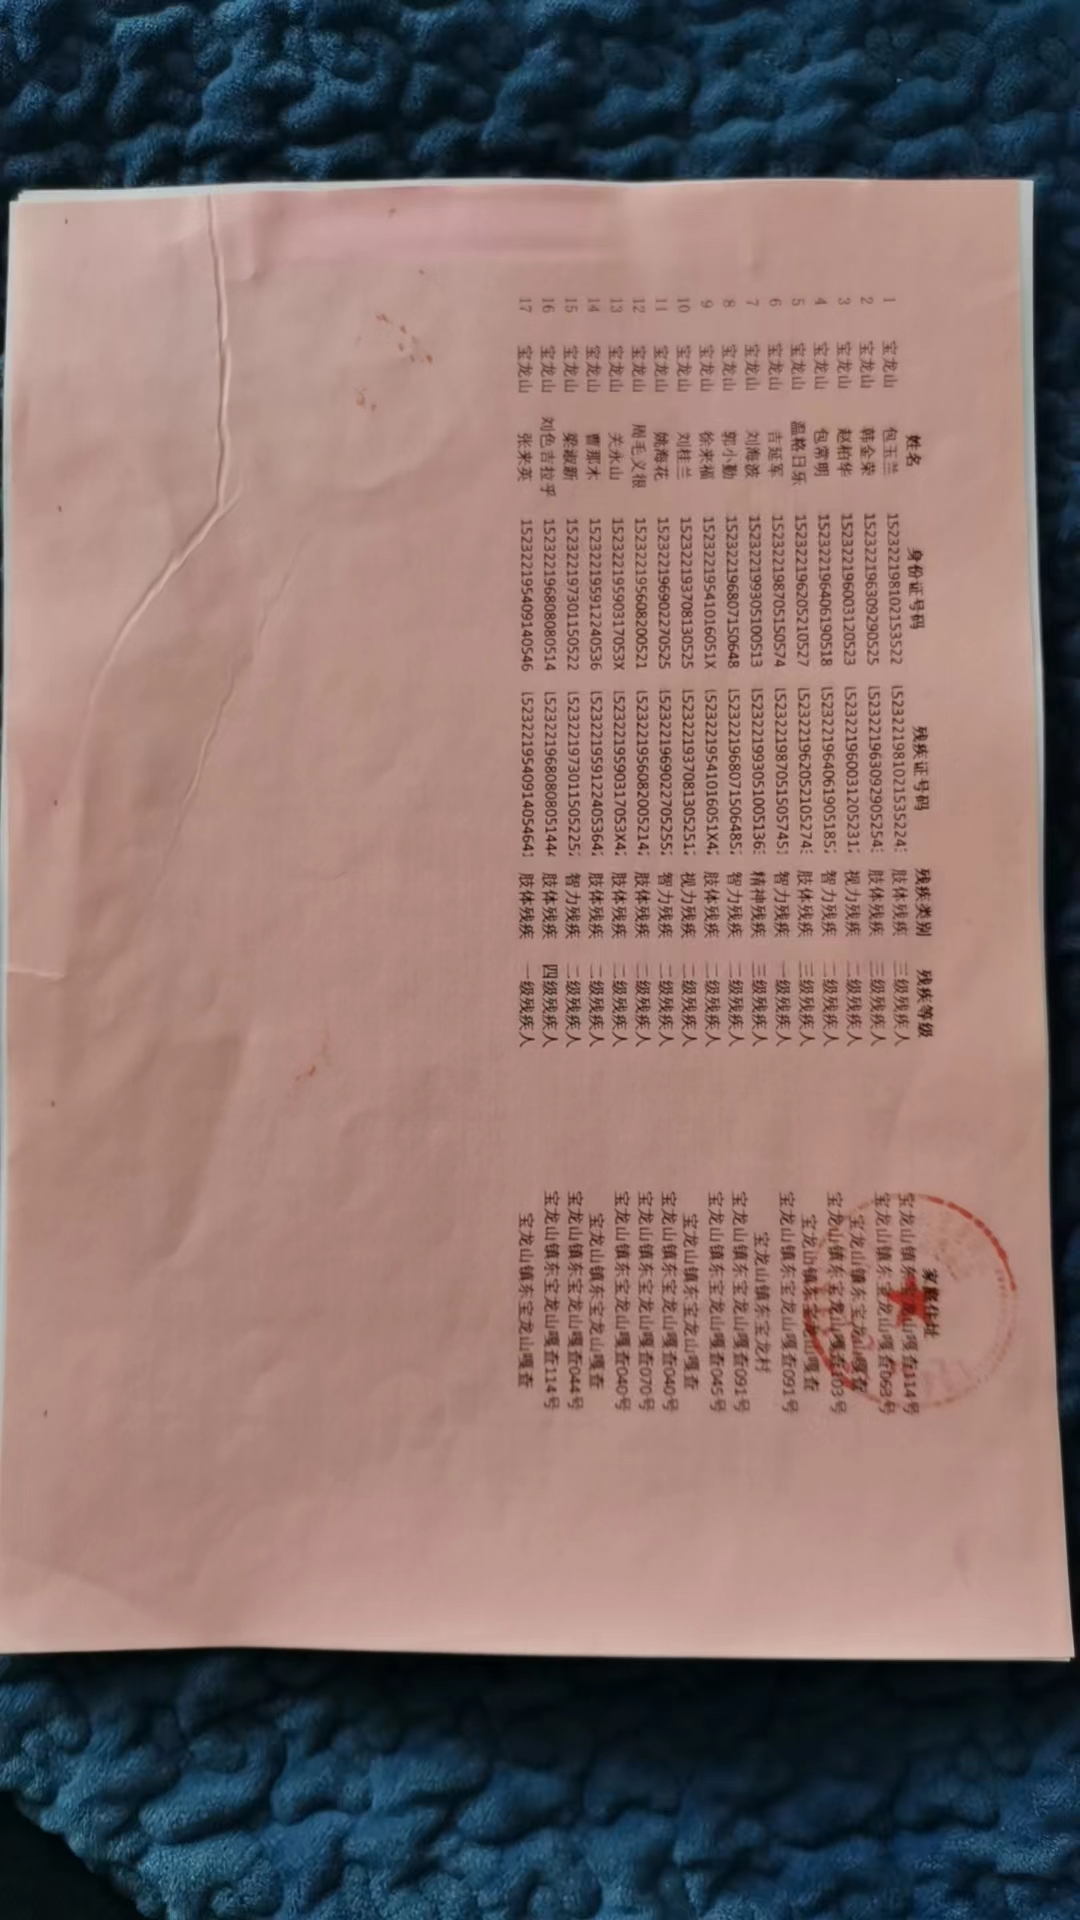 姓名 身份证号码 残疾证号码 残疾类别 残疾等级 家庭住址
1 宝龙山 包玉兰 152322198102153522 15232219810215352243 肢体残疾 三级残疾人 宝龙山镇东宝龙山嘎查114号
2 宝龙山 韩金荣 152322196309290525 1523221963092905254 肢体残疾 三级残疾人 宝龙山镇东宝龙山嘎查063号
3 宝龙山 赵柏华 152322196003120523 1523221960031205231 视力残疾 二级残疾人 宝龙山镇东宝龙山嘎查
4 宝龙山 包常明 152322196406190518 1523221964061905185 智力残疾 二级残疾人 宝龙山镇东宝龙山嘎查103号
5 宝龙山 温格日乐 152322196205210527 1523221962052105274 肢体残疾 三级残疾人 宝龙山镇东宝龙山嘎查
6 宝龙山 吉延军 152322198705150574 15232219870515057451 智力残疾 一级残疾人 宝龙山镇东宝龙山嘎查091号
7 宝龙山 刘海波 152322199305100513 1523221993051005136 精神残疾 三级残疾人 宝龙山镇东宝龙村
8 宝龙山 郭小勤 152322196807150648 1523221968071506485 智力残疾 二级残疾人 宝龙山镇东宝龙山嘎查091号
9 宝龙山 徐来福 15232219541016051X 15232219541016051X4 肢体残疾 二级残疾人 宝龙山镇东宝龙山嘎查045号
10 宝龙山 刘桂兰 152322193708130525 1523221937081305251 视力残疾 二级残疾人 宝龙山镇东宝龙山嘎查
11 宝龙山 姚海花 152322196902270525 1523221969022705255 智力残疾 二级残疾人 宝龙山镇东宝龙山嘎查040号
12 宝龙山 周毛义很 152322195608200521 1523221956082005214 肢体残疾 二级残疾人 宝龙山镇东宝龙山嘎查070号
13 宝龙山 关永山 15232219590317053X 15232219590317053X4 肢体残疾 二级残疾人 宝龙山镇东宝龙山嘎查040号
14 宝龙山 曹那木 152322195912240536 1523221959122405364 肢体残疾 二级残疾人 宝龙山镇东宝龙山嘎查
15 宝龙山 梁淑新 152322197301150522 1523221973011505225 智力残疾 二级残疾人 宝龙山镇东宝龙山嘎查044号
16 宝龙山 刘色吉拉乎 152322196808080514 15232219680808051444 肢体残疾 四级残疾人 宝龙山镇东宝龙山嘎查114号
17 宝龙山 张来英 152322195409140546 15232219540914054641 肢体残疾 一级残疾人 宝龙山镇东宝龙山嘎查